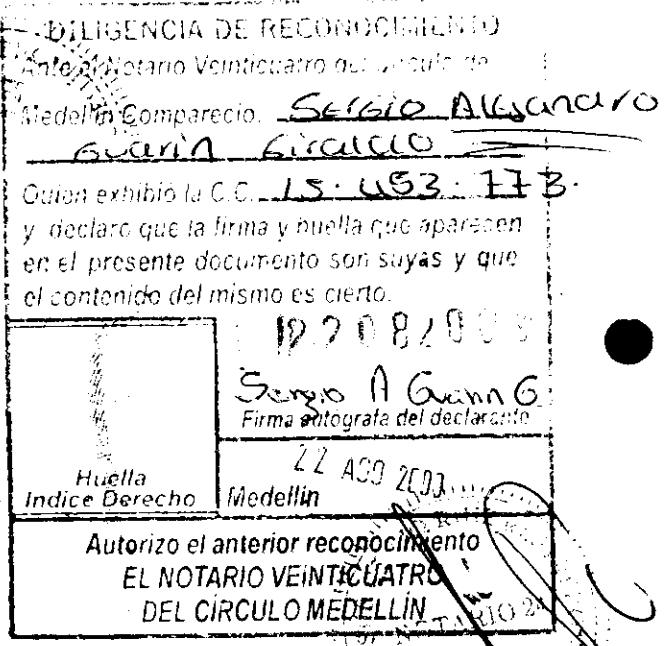 DILIGENCIA DE RECONOCIMIENTO
Ante el Notario Veinticuatro del Círculo de
Medellín Compareció. Sergio Alejandro
Guarin Giraldo
Quien exhibió la C.C. 15.453.773.
y declaro que la firma y huella que aparecen
en el presente documento son suyas y que
el contenido del mismo es cierto.
Sergio A Guarin G
Firma autógrafa del declarante
22 AGO
Huella
Indice Derecho
Medellín
Autorizo el anterior reconocimiento
EL NOTARIO VEINTICUATRO
DEL CÍRCULO MEDELLÍN
NOTARIO 24